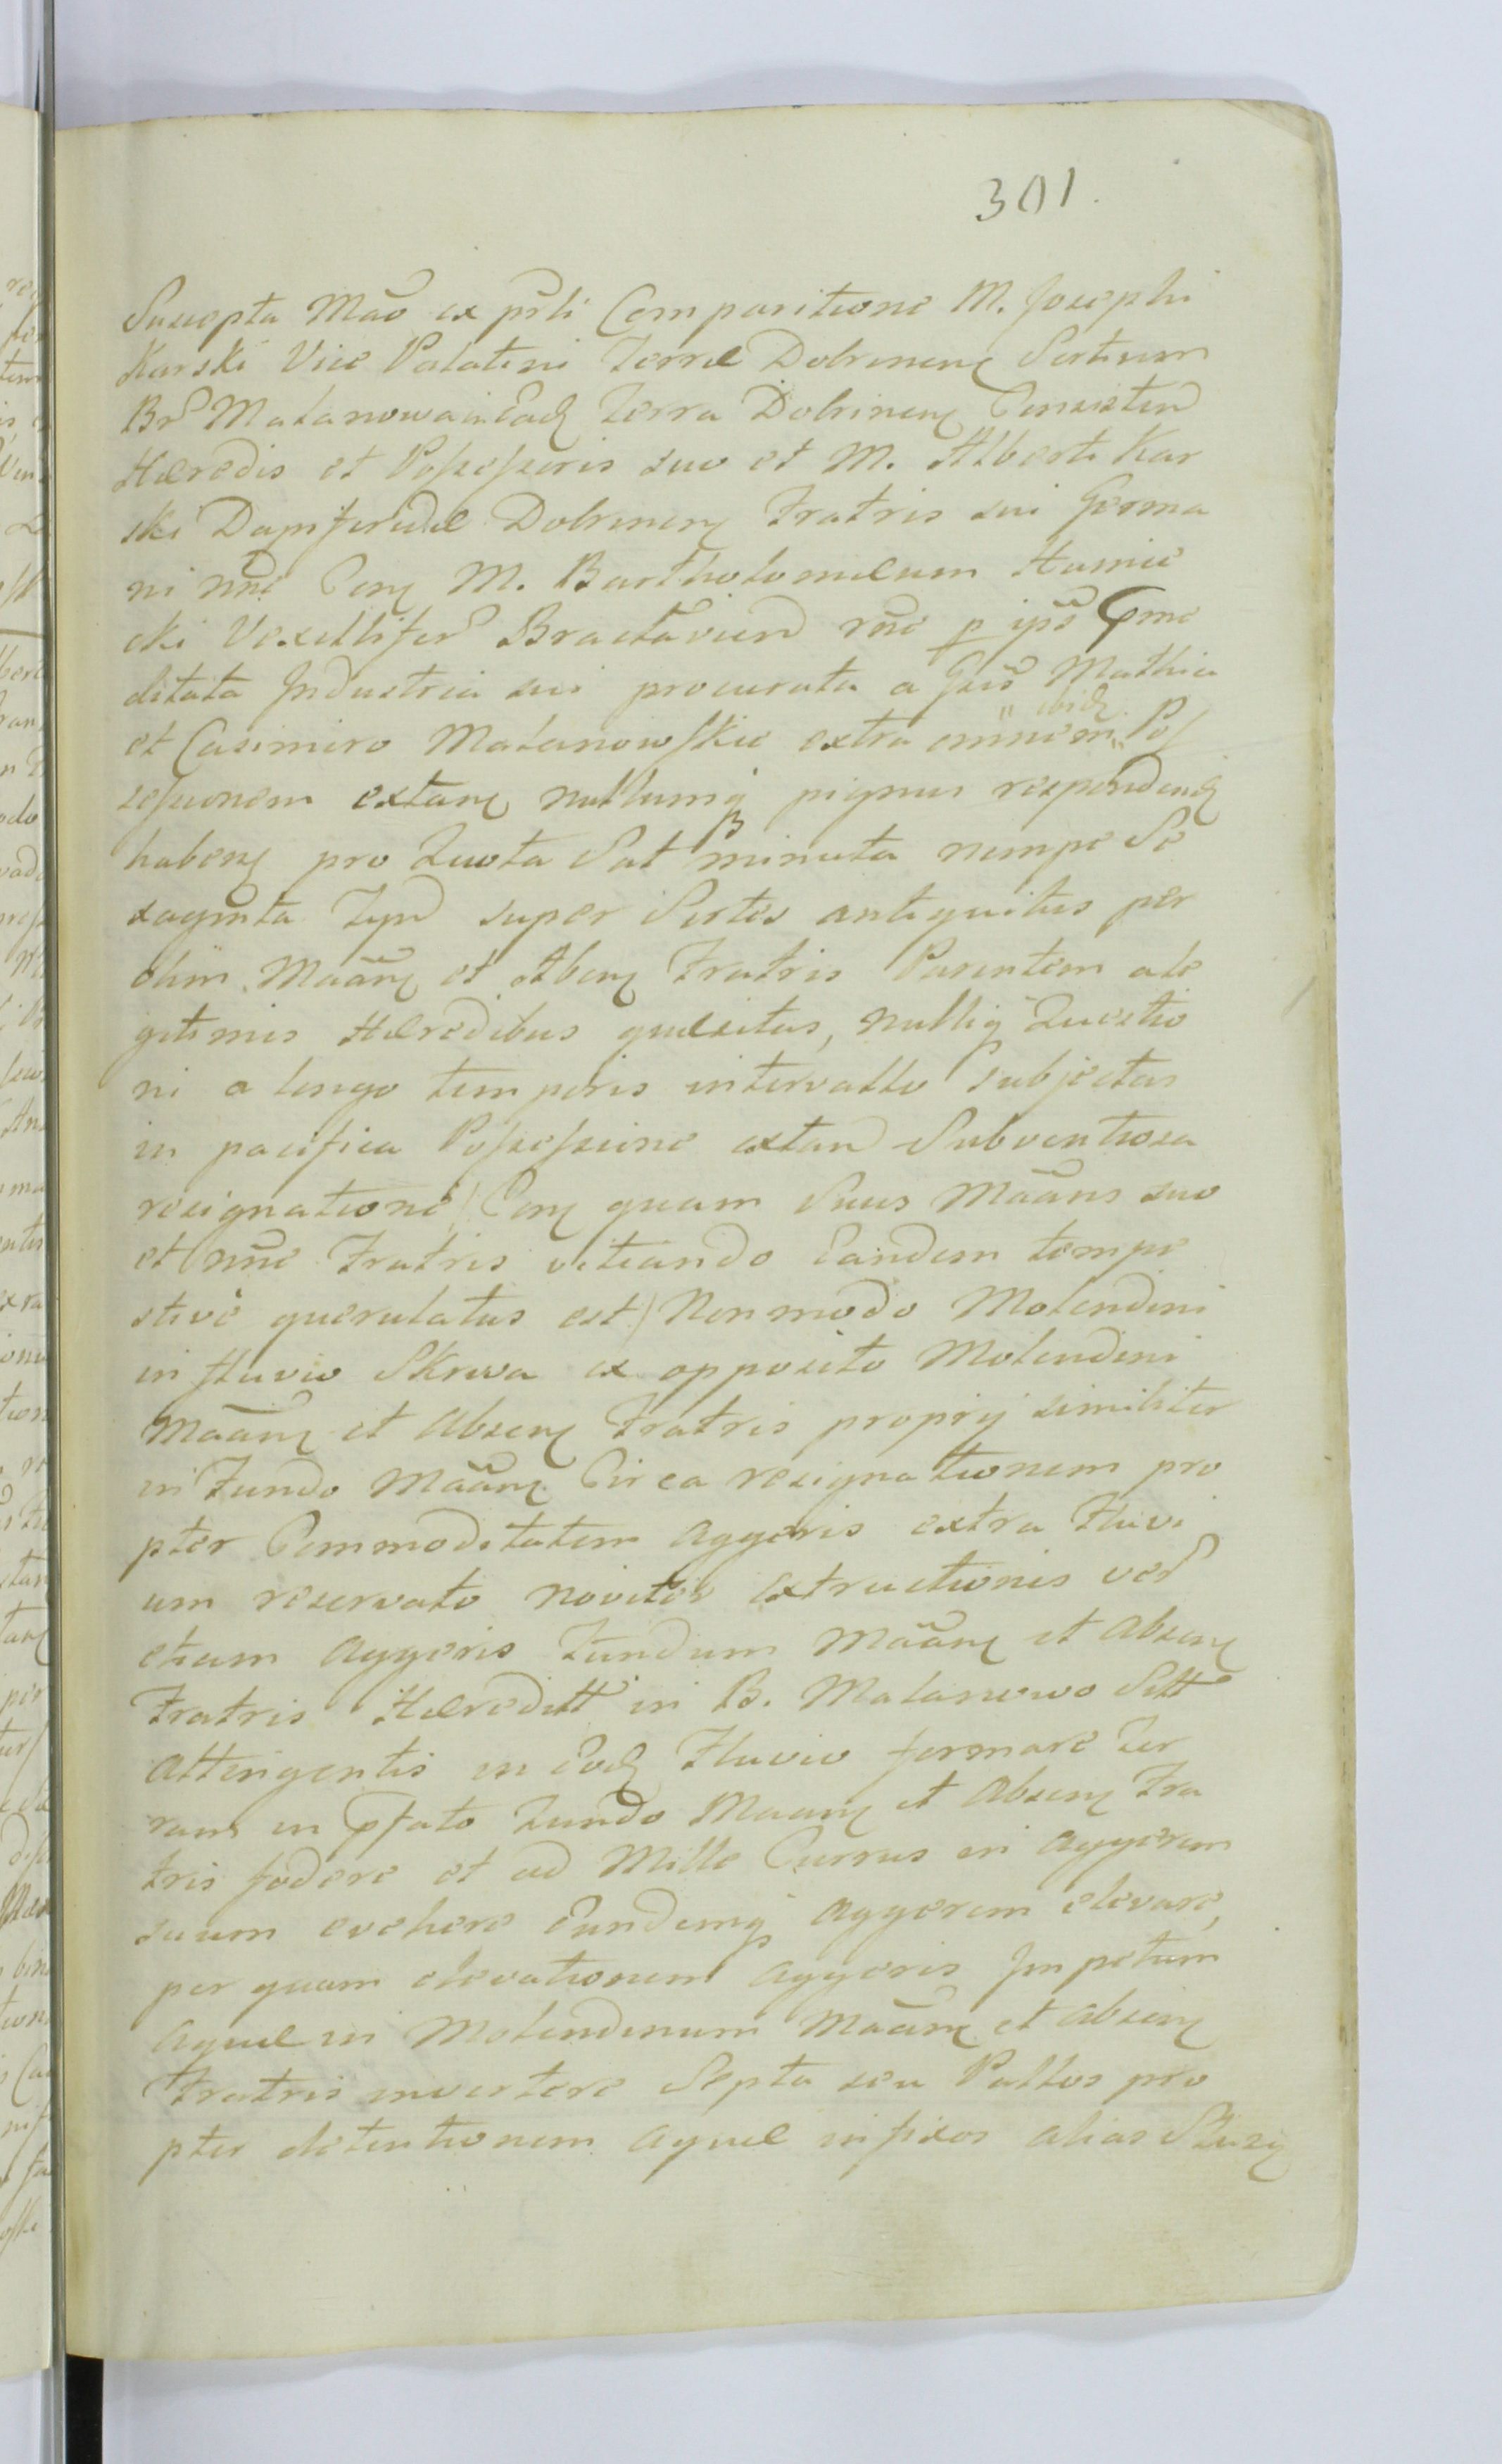 301.
Suscepta Mão ex põli Comparitione M. Josephi
Karski Vice Palatini Terræ Dobrinen Sortium
Br Malanowa in Ead Terra Dobrinen Consisten
Hæredis et Possessoris suo et M. Alberti Kar
ski Dapiferidæ Dobrinen Fratris sui Germa
ni nñe Con M. Bartholomæum Humie
cki Vexillifer Bractavien rñe p ipš Præme
ditata Industria sui procurata a Gsis Mathia
et Casimiro Malanowskie extra omnem "ibid" Pos
sessionem extan nullumq pignus respondend
haben pro Quota Sat minuta nempe Se
xaginta Tynf super Sortes antiquitus per
olim Mãan et Aben Fratris Parentem a le
gitimis Hæredibus quæsitas, nulliq Quæstio
ni a longo temporis intervallo Subjectas
in pacifica Possessione extan Subventiosa
resignatione (Con quam Suus Mãans suo
et nñe Fratris vitiando Eandem tempe
stivè querulatus est) Non modo Molendini
in fluvio Skrwa ex opposito Molendini
Mãan et Absen Fratris proprij similiter
in Fundo Mãan Circa resignationem pro
pter Commoditatem Aggeris extra Fluvi
um reservato noviter extructionis ver
etiam Aggeris Fundum Mãan et Absen
Fratris Hæreditt in B. Malanowo Sitt
Attingentis in Eod Fluvio formare Ter
ram in Pfato Fundo Maan et Absen Fra
tris fodere et ad Mille Currus in Aggerem
suum evehere Eundemq Aggerem elevare,
per quam elevationem Aggeris Impetum
Aquæ in Molendinum Mãan et Absen
Fratris invertere Septa seu Pallos pro
pter detentionem Aquæ infixos alias Sluzy